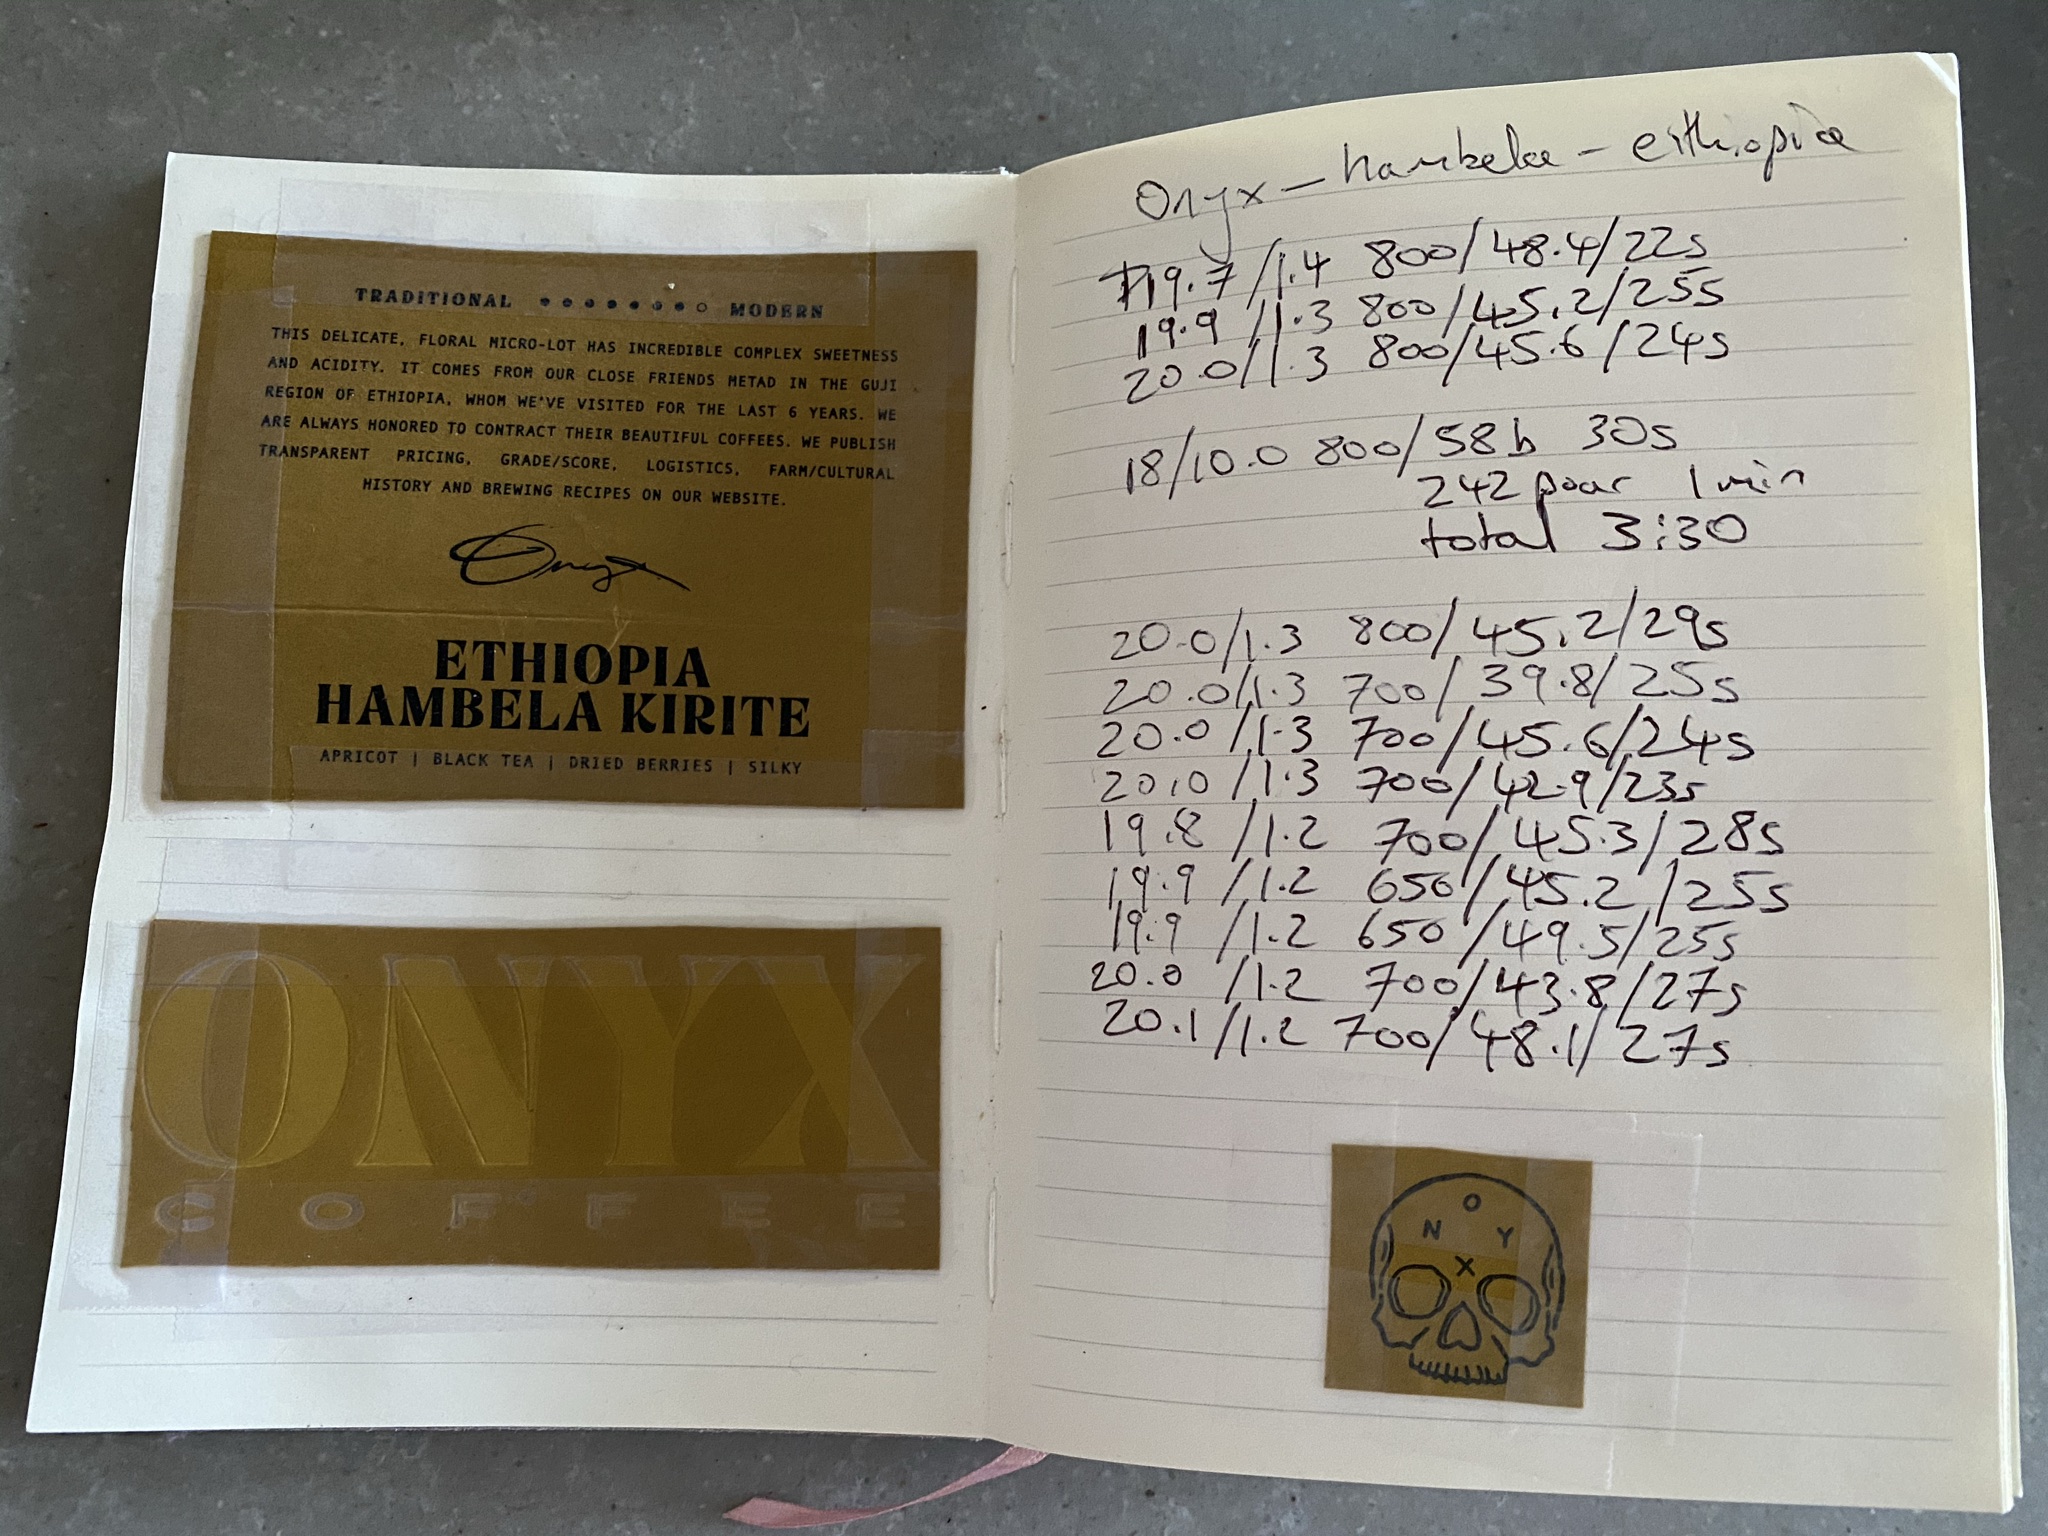 TRADITIONAL MODERN
THIS DELICATE, FLORAL MICRO-LOT HAS INCREDIBLE COMPLEX SWEETNESS
AND ACIDITY. IT COMES FROM OUR CLOSE FRIENDS METAD IN THE GUJI
REGION OF ETHIOPIA, WHOM WE'VE VISITED FOR THE LAST 6 YEARS. WE
ARE ALWAYS HONORED TO CONTRACT THEIR BEAUTIFUL COFFEES. WE PUBLISH
TRANSPARENT PRICING, GRADE/SCORE, LOGISTICS, FARM/CULTURAL
HISTORY AND BREWING RECIPES ON OUR WEBSITE.
Onyx
ETHIOPIA
HAMBELA KIRITE
APRICOT | BLACK TEA | DRIED BERRIES | SILKY
ONYX
COFFEE
Onyx - hambela - eithiopia
19.7/1.4 800/48.4/22s
19.9/1.3 800/45.2/25s
20.0/1.3 800/45.6/24s
18/10.0 800/58b 30s
242 pour 1 min
total 3:30
20.0/1.3 800/45.2/29s
20.0/1.3 700/39.8/25s
20.0/1.3 700/45.6/24s
20.0/1.3 700/42.9/23s
19.8/1.2 700/45.3/28s
19.9/1.2 650/45.2/25s
19.9/1.2 650/49.5/25s
20.0/1.2 700/43.8/27s
20.1/1.2 700/48.1/27s
O
N Y
X